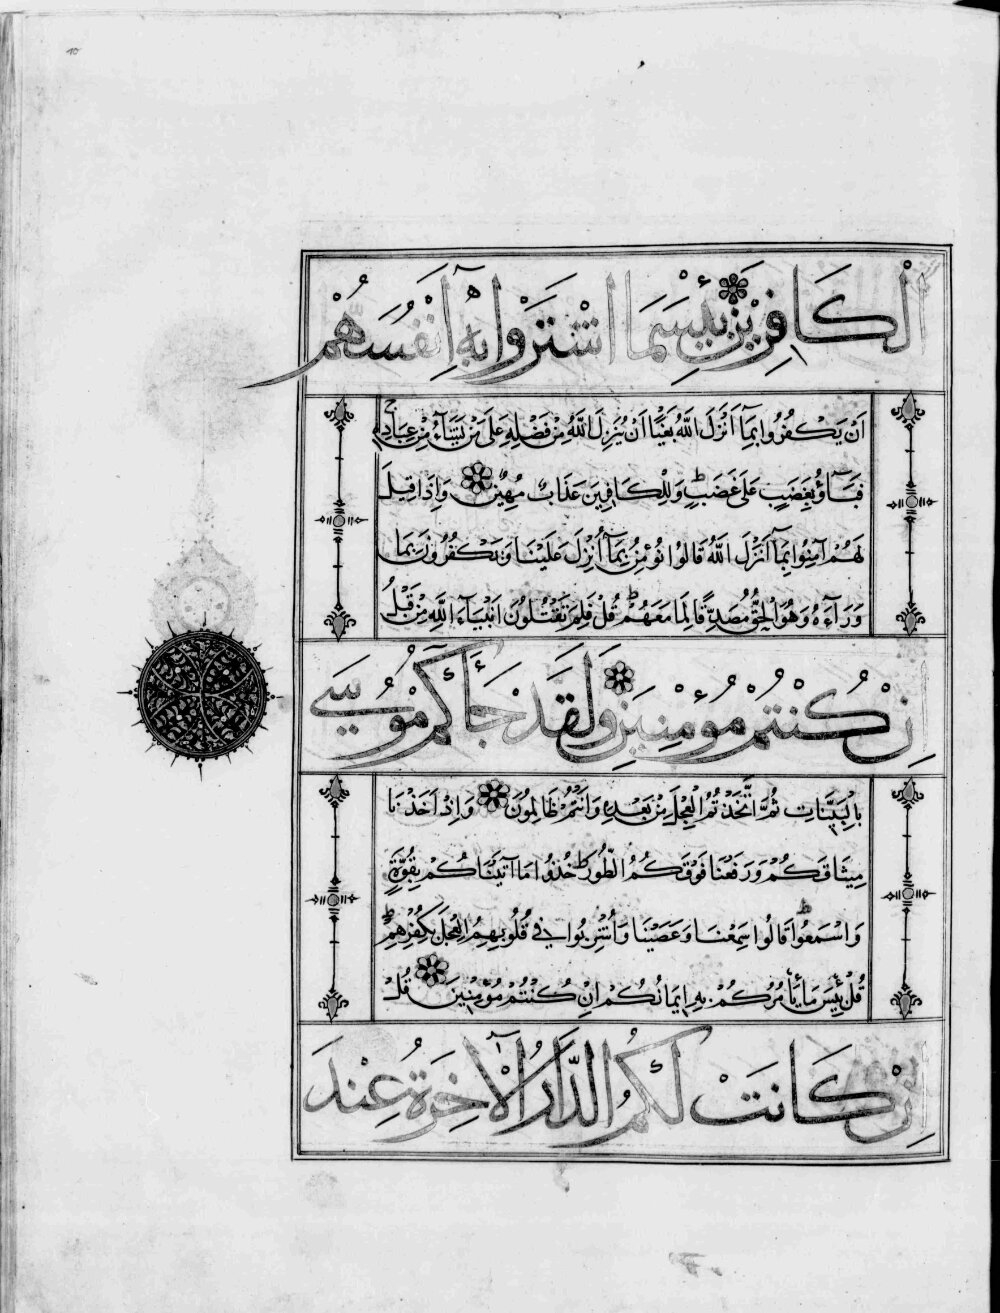 10
الْكَافِرِينَ بِئْسَمَا اشْتَرَوْا بِهِ أَنْفُسَهُمْ
اَنْ يَكْفُرُوا بِمَآ اَنْزَلَ اللَّهُ بَغْيًا اَنْ يُنَزِّلَ اللَّهُ مِنْ فَضْلِهِ عَلَى مَنْ يَشَآءُ مِنْ عِبَادِهِ
فَبَآؤُ بِغَضَبٍ عَلَى غَضَبٍ وَلِلْكَافِرِينَ عَذَابٌ مُهِينٌ وَإِذَا قِيلَ
لَهُمْ آمِنُوا بِمَآ اَنْزَلَ اللَّهُ قَالُوا نُؤْمِنُ بِمَآ أُنْزِلَ عَلَيْنَا وَيَكْفُرُونَ بِمَا
وَرَآءَهُ وَهُوَ الْحَقُّ مُصَدِّقًا لِمَا مَعَهُمْ قُلْ فَلِمَ تَقْتُلُونَ اَنْبِيَآءَ اللَّهِ مِنْ قَبْلُ
اِنْ كُنْتُمْ مُؤْمِنِينَ وَلَقَدْ جَآءَكُمْ مُوسَى
بِالْبَيِّنَاتِ ثُمَّ اتَّخَذْتُمُ الْعِجْلَ مِنْ بَعْدِهِ وَاَنْتُمْ ظَالِمُونَ وَاِذْ اَخَذْنَا
مِيثَاقَكُمْ وَرَفَعْنَا فَوْقَكُمُ الطُّورَ خُذُوا مَا آتَيْنَاكُمْ بِقُوَّةٍ
وَاسْمَعُوا قَالُوا سَمِعْنَا وَعَصَيْنَا وَأُشْرِبُوا فِي قُلُوبِهِمُ الْعِجْلَ بِكُفْرِهِمْ
قُلْ بِئْسَ مَا يَأْمُرُكُمْ بِهِ اِيمَانُكُمْ اِنْ كُنْتُمْ مُؤْمِنِينَ قُلْ
اِنْ كَانَتْ لَكُمُ الدَّارُ الْآخِرَةُ عِنْدَ